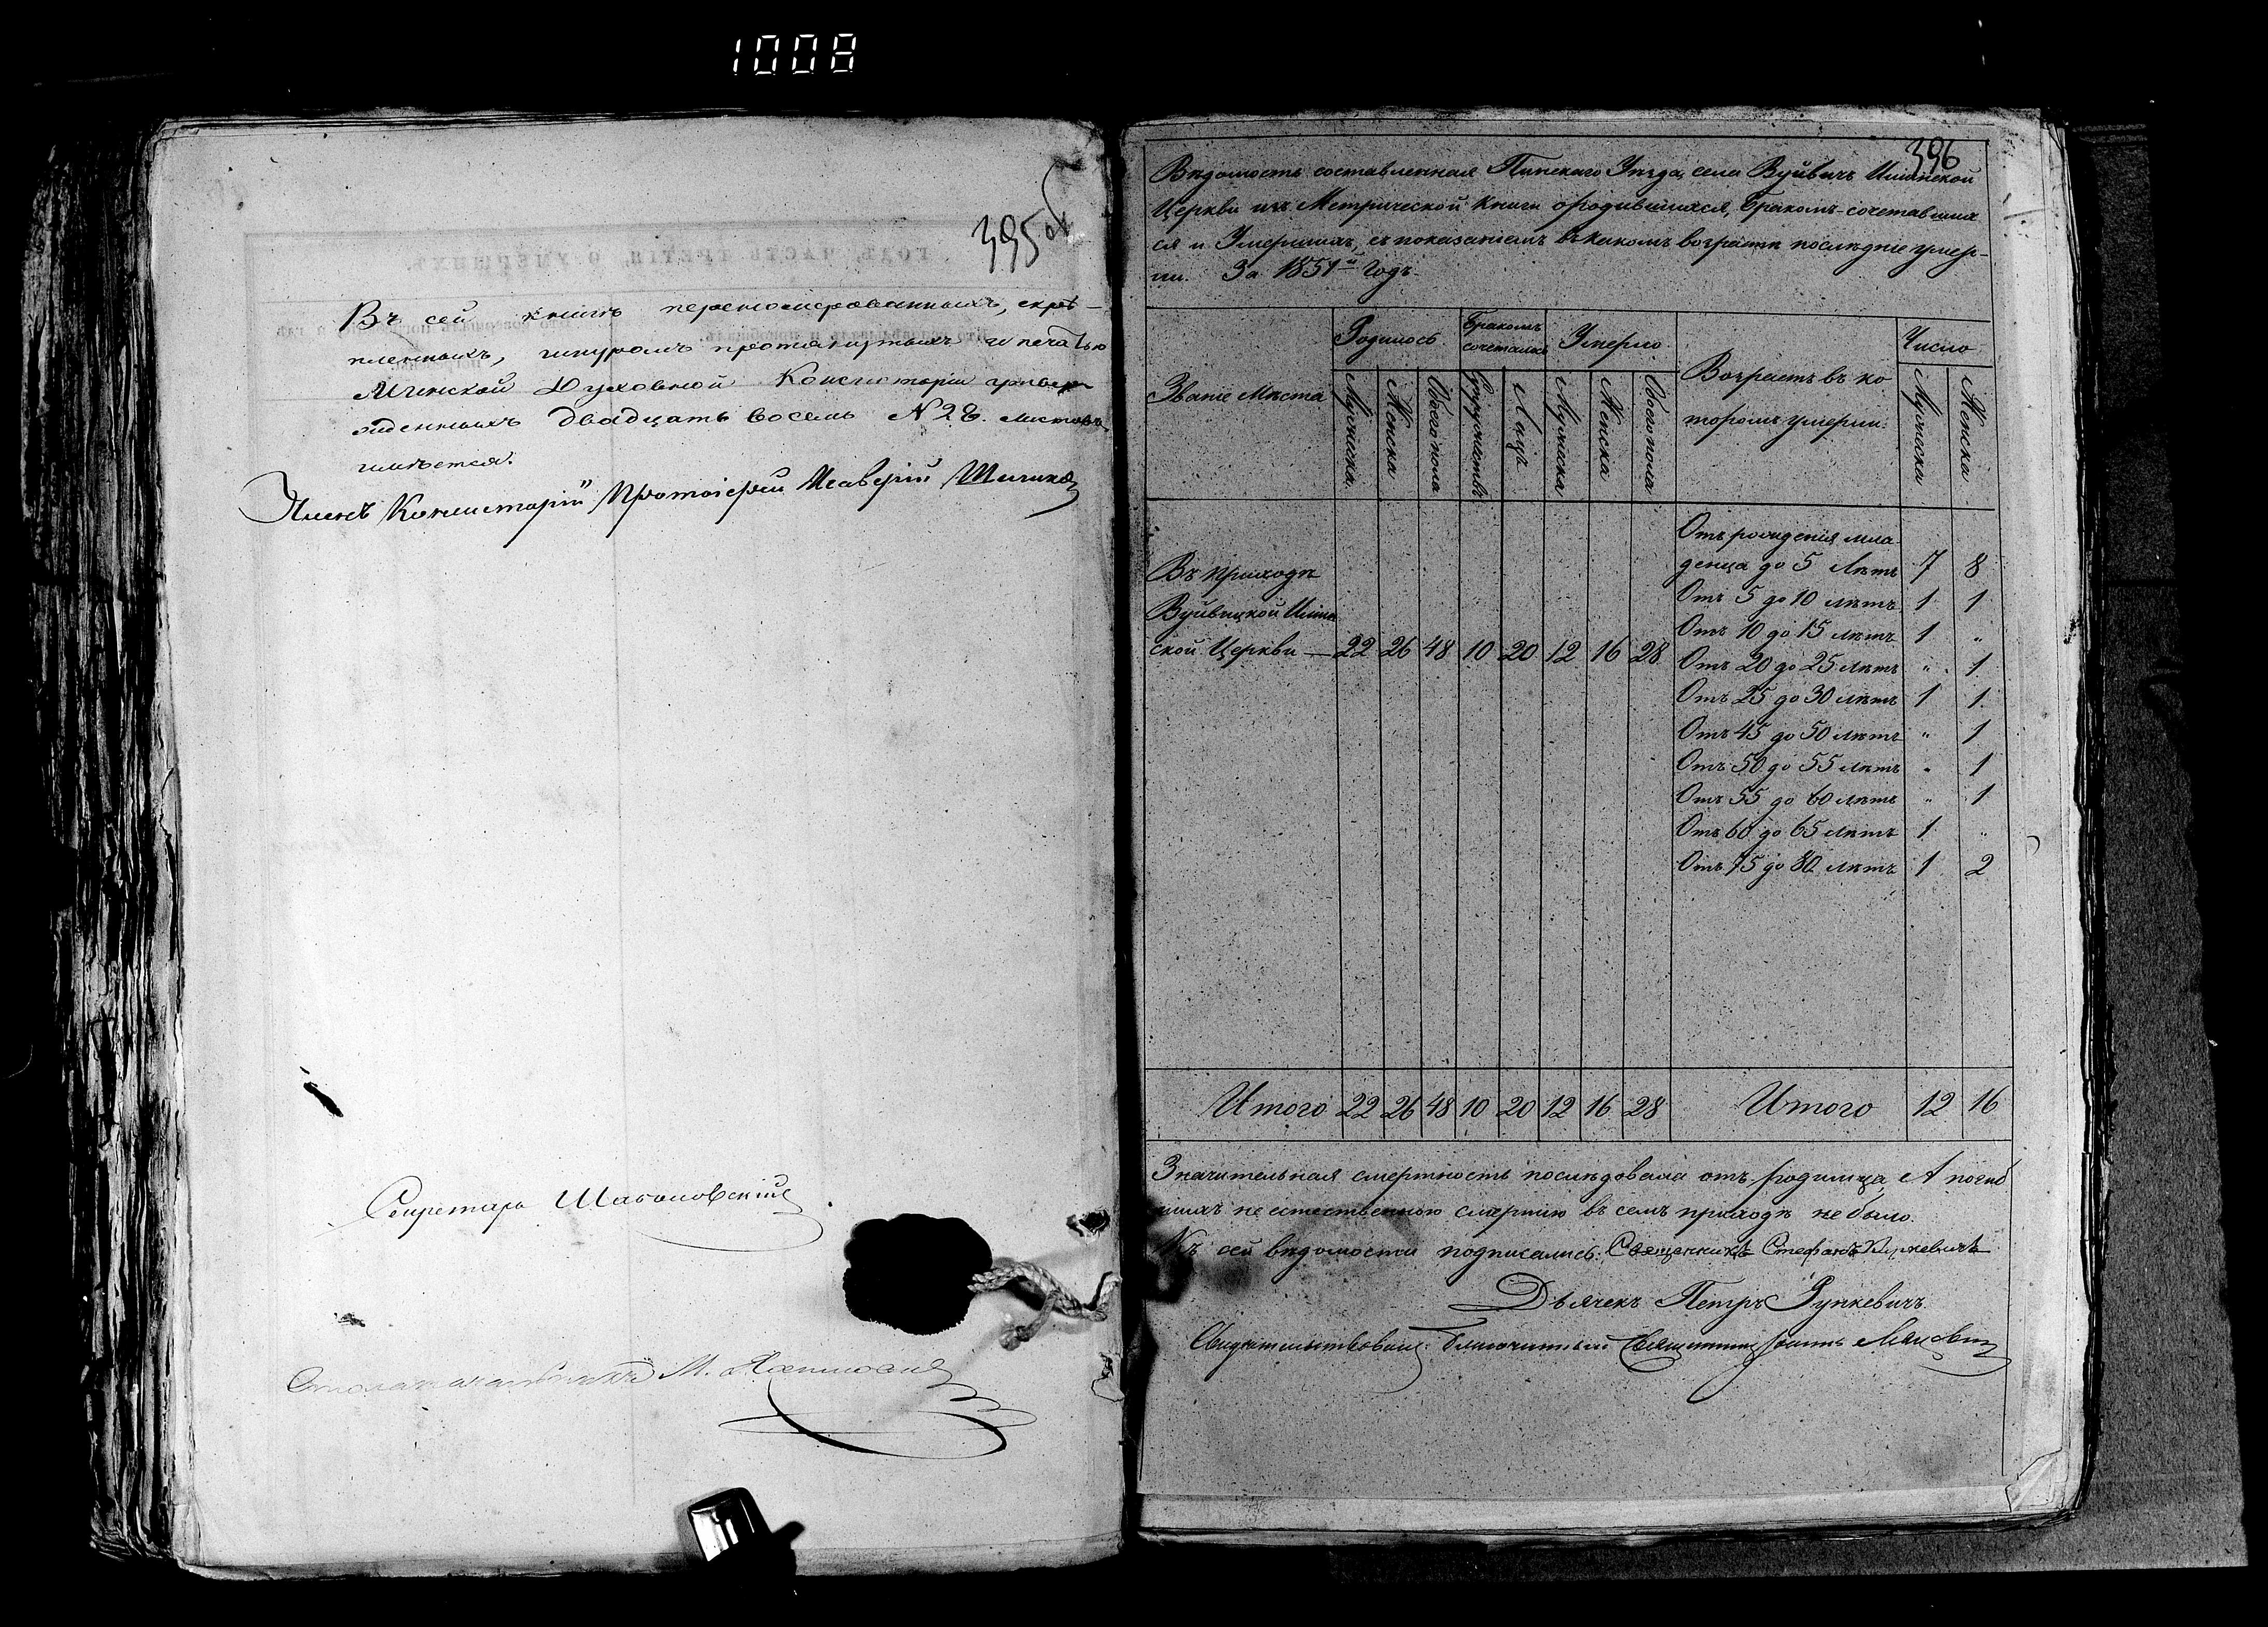 1008
395 об
Въ сей книгѣ переномерованныхъ, скрѣ-
пленныхъ, шнуромъ протянутыхъ и печатью
Минской Духовной Консисторіи утверж
жденныхъ двадцать восемь № 28. листовъ
имѣется.
Членъ Консисторіи Протоіерей
Секретарь
Столоначальникъ М.
396
Вѣдомость составленная Пинскаго Уѣзда, села Вуйвичъ Ильинской
Церкви изъ Метрической Книги о родившихся, Бракомъ-сочетавших
ся и Умершихъ, съ показаніемъ въ какомъ возрастѣ послѣдніе умер-
ли. За 1851й Годъ.
Званіе Мѣста
Родилось
Бракомъ сочеталось
Умерло
Возрастъ въ ко
торомъ умерли.
Число
Мужеска
Женска
Обоего пола
Супружествъ
Лицъ
Мужеска
Женска
Обоего пола
Мужеска
Женска
Отъ рожденія мла
денца до 5 Лѣтъ 7 8
Отъ 5 до 10 лѣтъ 1 1
Отъ 10 до 15 лѣтъ 1 "
Отъ 20 до 25 лѣтъ " 1
Отъ 25 до 30 лѣтъ 1 1
Отъ 45 до 50 лѣтъ " 1
Отъ 50 до 55 лѣтъ " 1
Отъ 55 до 60 лѣтъ " 1
Отъ 60 до 65 лѣтъ 1 "
Отъ 75 до 80 лѣтъ 1 2
Въ приходѣ
Вуйвицкой Ильин
ской Церкви — 22 26 48 10 20 12 16 28
Итого 22 26 48 10 20 12 16 28 Итого 12 16
Значительная смертность послѣдовала отъ родимца, А погиб
шихъ не естественною смертію въ семъ приходѣ не было.
Къ сей вѣдомости подписались: Священникъ Стефанъ Рункевичъ
Дьячекъ Петръ Рункевичъ
Свидѣтельствовалъ Благочинный Священникъ Іоаннъ